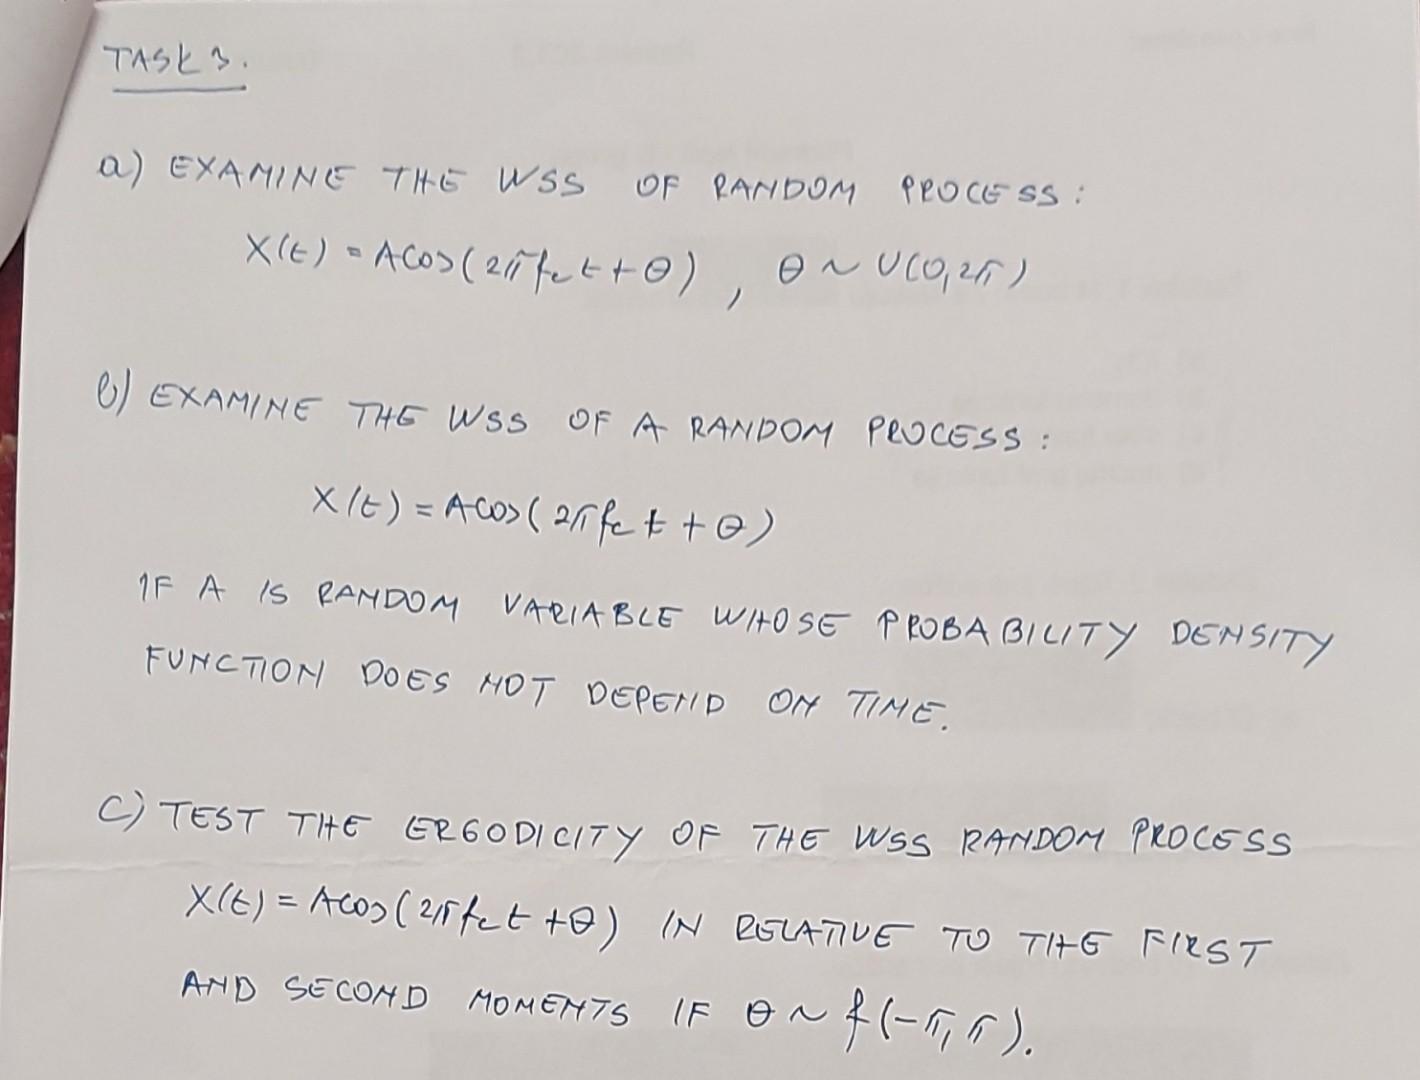 TASK 3.
a) EXAMINE THE WSS OF RANDOM PROCESS:
X(t) = Acos(2πfct+θ), θ ~ U(0,2π)
b) EXAMINE THE WSS OF A RANDOM PROCESS:
X(t) = Acos(2πfct+θ)
IF A IS RANDOM VARIABLE WHOSE PROBABILITY DENSITY
FUNCTION DOES NOT DEPEND ON TIME.
C) TEST THE ERGODICITY OF THE WSS RANDOM PROCESS
X(t) = Acos(2πfct+θ) IN RELATIVE TO THE FIRST
AND SECOND MOMENTS IF θ ~ f(-π,π).